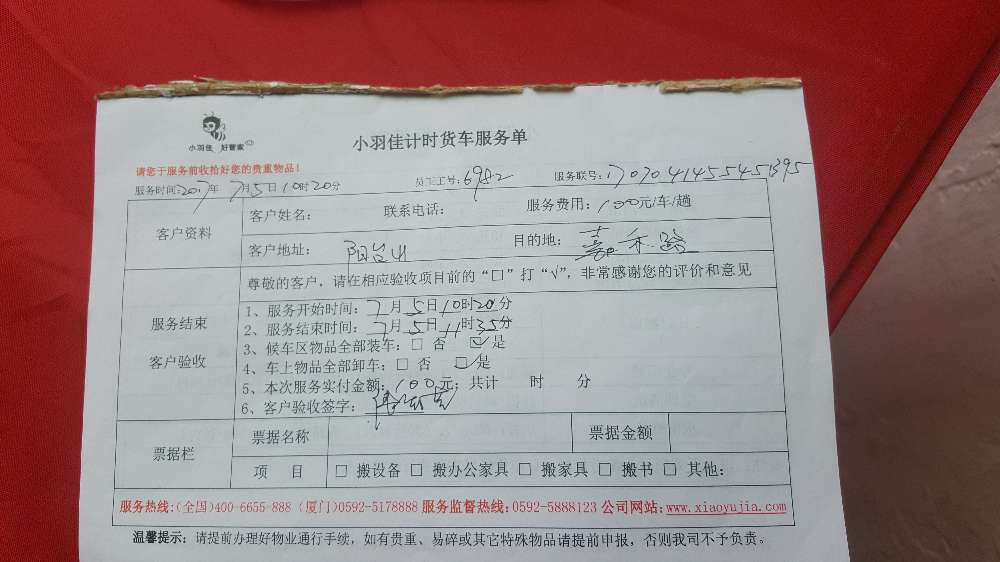 小羽佳 好管家
小羽佳计时货车服务单
请您于服务前收拾好您的贵重物品!
服务时间:2017年7月5日10时20分 员工工号:6982 服务联号:170704145545395
客户资料
客户姓名: 联系电话: 服务费用:100元/车/趟
客户地址: 阳台山 目的地: 嘉禾路
尊敬的客户,请在相应验收项目前的“口”打“√”,非常感谢您的评价和意见
服务结束
客户验收
1、服务开始时间:7月5日10时20分
2、服务结束时间:7月5日11时35分
3、候车区物品全部装车:□ 否 ☑是
4、车上物品全部卸车:□ 否 ☑是
5、本次服务实付金额:100元;共计 时 分
6、客户验收签字:
票据栏
票据名称 票据金额
项 目 □ 搬设备 □ 搬办公家具 □ 搬家具 □ 搬书 □ 其他:
服务热线:(全国)400-6655-888 (厦门)0592-5178888 服务监督热线:0592-5888123 公司网站:www.xiaoyujia.com
温馨提示:请提前办理好物业通行手续,如有贵重、易碎或其它特殊物品请提前申报,否则我司不予负责。